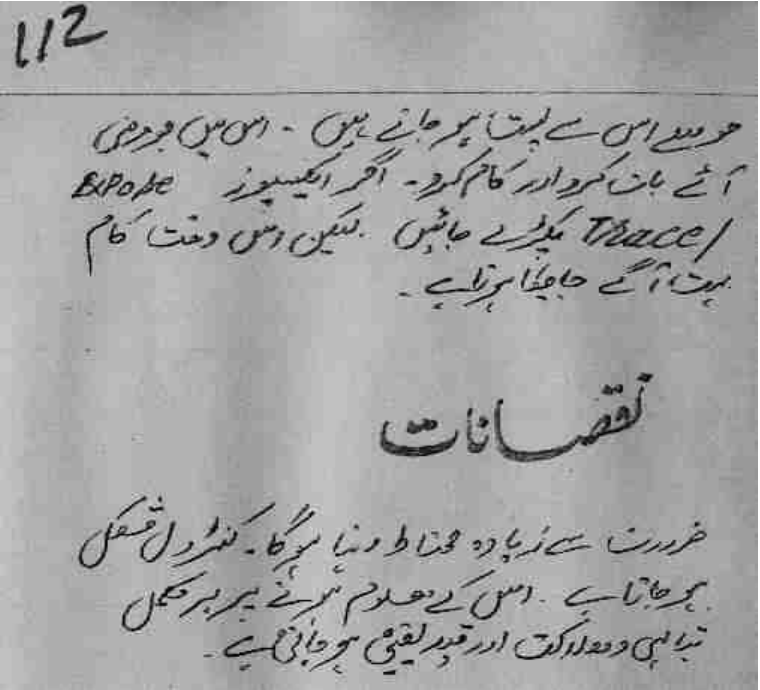 112
حوصلے اس سے پست ہو جاتے ہیں - اس میں جو مرضی
آئے بات کرو اور کام کرو - اگر ایکسپوز Expose
/Trace پکڑے جائیں . لیکن اس وقت کام
بہت آگے جا چکا ہوتا ہے -
نقصانات
ضرورت سے زیادہ محتاط رہنا ہو گا - کنٹرول مشکل
ہو جاتا ہے . اس کے معلوم ہونے پر مکمل
تباہی و ہلاکت اور قید یقینی ہو جاتی ہے -